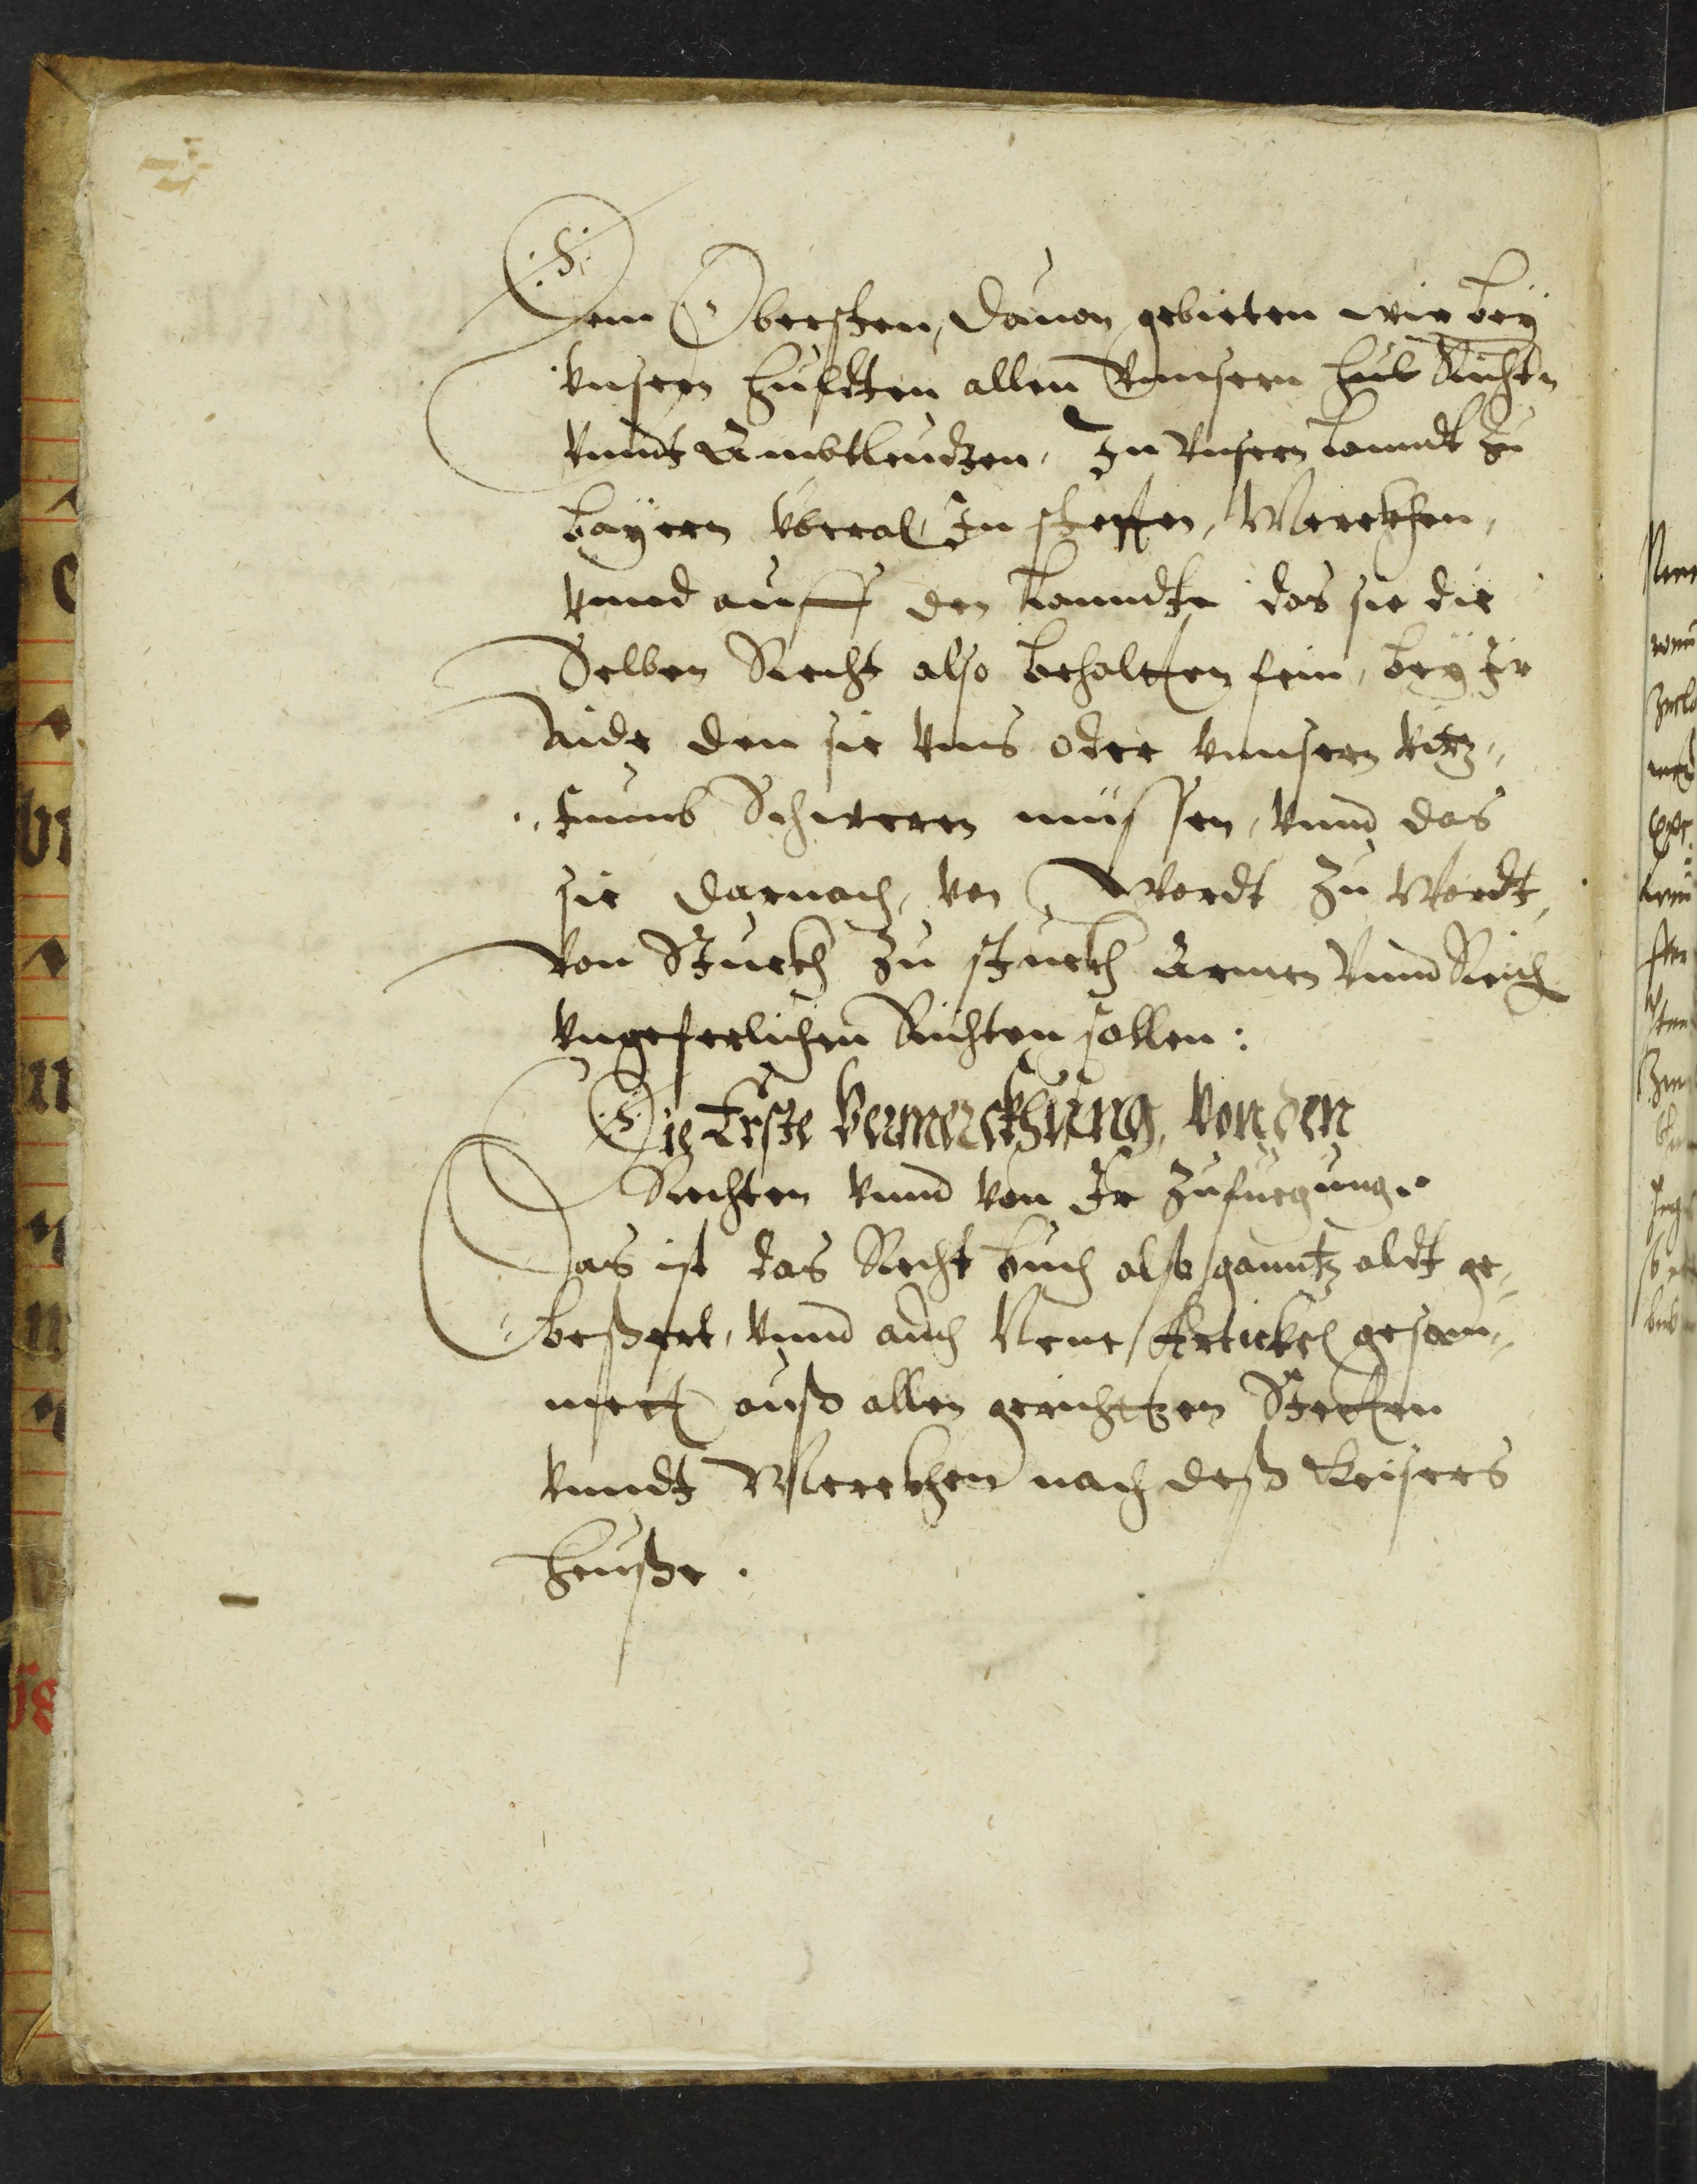 dem Obersten, dauon gebieten wir bey
Vnsern hulden allen Vnnsern hul Richtn
Vnndt Ambtleudten, In Vnsern Lanndt zu
bayern Vberal, In stetten, Merckhen,
Vnnd auff den Lanndte das sie die
Selben Recht also behalten sein, bey Ir
Aide den sie Vnns oder Vnnsern Vitz,,
,,tumb Schweren müssen, Vnnd das
sie darnach, von Wordt zu Wordt,
Von Stuckh zu stuckh Armen Vnnd Reich
Vngeferlichen Richten sollen:
Die Erste Vermerckhung, Von den
Rechten Vnnd Von Ir Zufuegung.
Das ist das Recht buch also ganntz aldt ge,,
,,bessert, Vnnd auch Neue Artickel gesam,,
melt auß allen gerichten Stetten
Vnndt Merckhen nach deß Keisers
heusse.